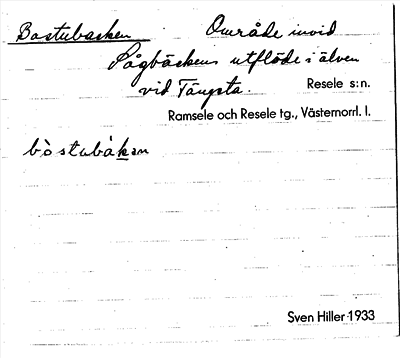 Bastubacken Område invid
Sågbäckens utflöde i älven
vid Tängsta. Resele s:n.
Ramsele och Resele tg., Västernorrl. l.
bòstubàkan
Sven Hiller 1933